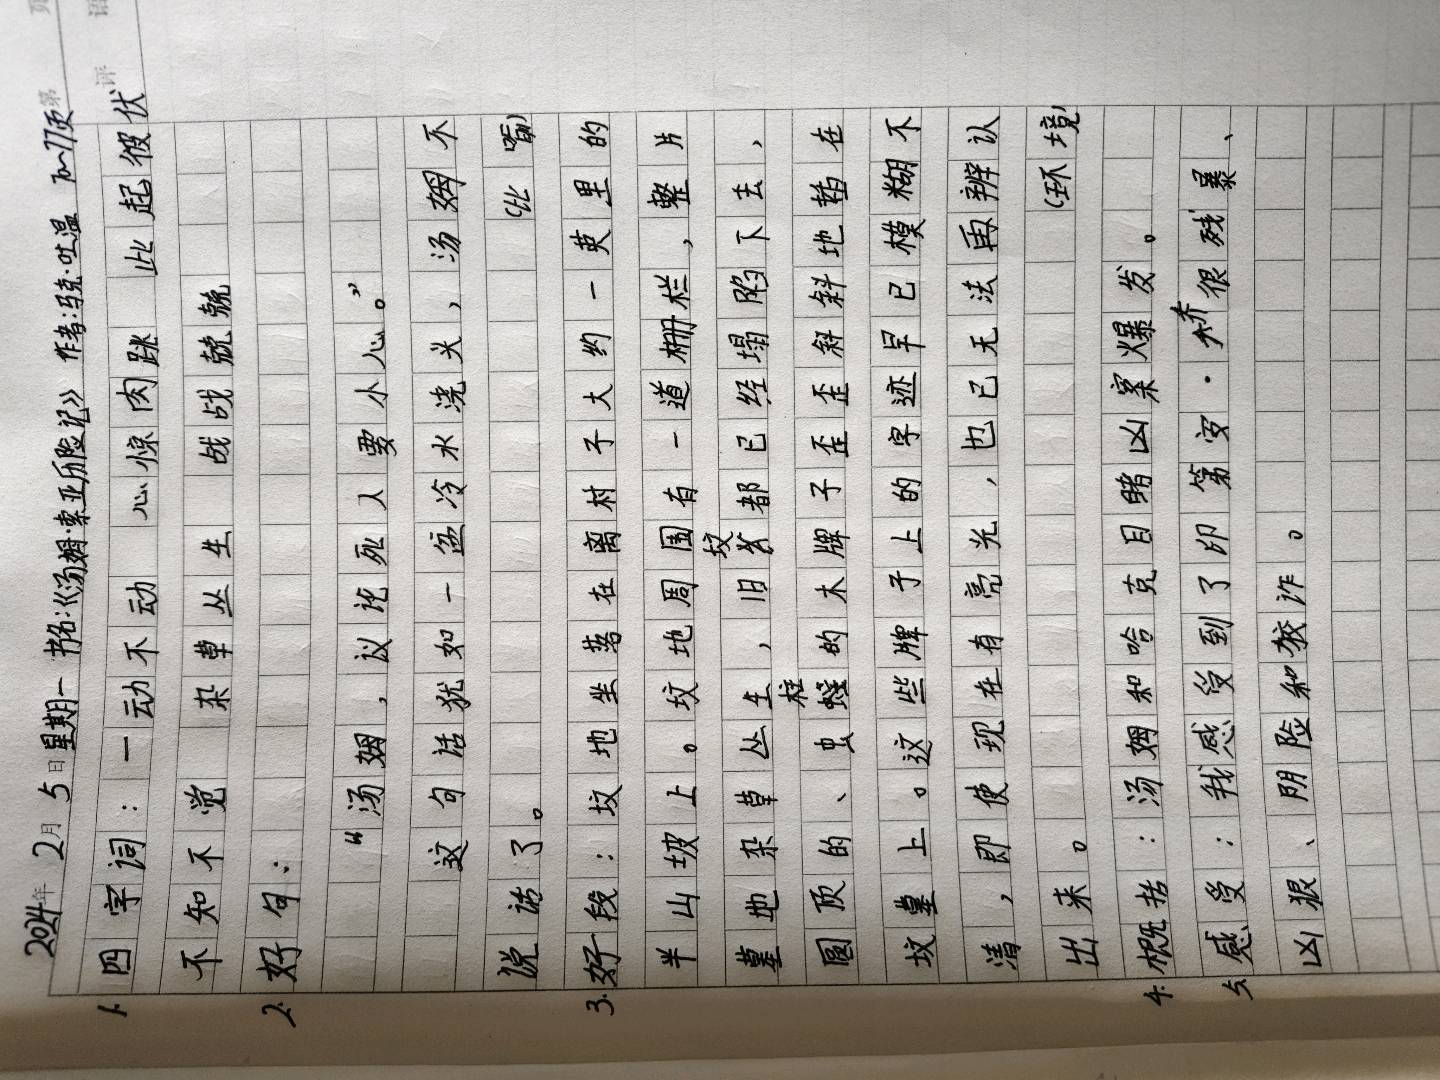 2024年2月5日星期一 书名:《汤姆·索亚历险记》 作者:马克·吐温 70~77页
1. 四字词:一动不动 心惊肉跳 此起彼伏
不知不觉 杂草丛生 战战兢兢
2. 好句:
“汤姆,议论死人要小心。”
这句话犹如一盆冷水浇头,汤姆不
说话了。 (比喻)
3. 好段:坟地坐落在离村子大约一英里的
半山坡上。坟地周围有一道栅栏,整片
墓地杂草丛生,旧坟都已经塌陷下去,
圆顶的、虫蛀的木牌子歪歪斜斜地插在
坟墓上。这些牌子上的字迹早已模糊不
清,即使现在有亮光,也已无法再辨认
出来。 (环境)
4. 概括:汤姆和哈克目睹凶案爆发。
5. 感受:我感受到了印第安·乔很残暴、
凶狠、阴险和狡诈。